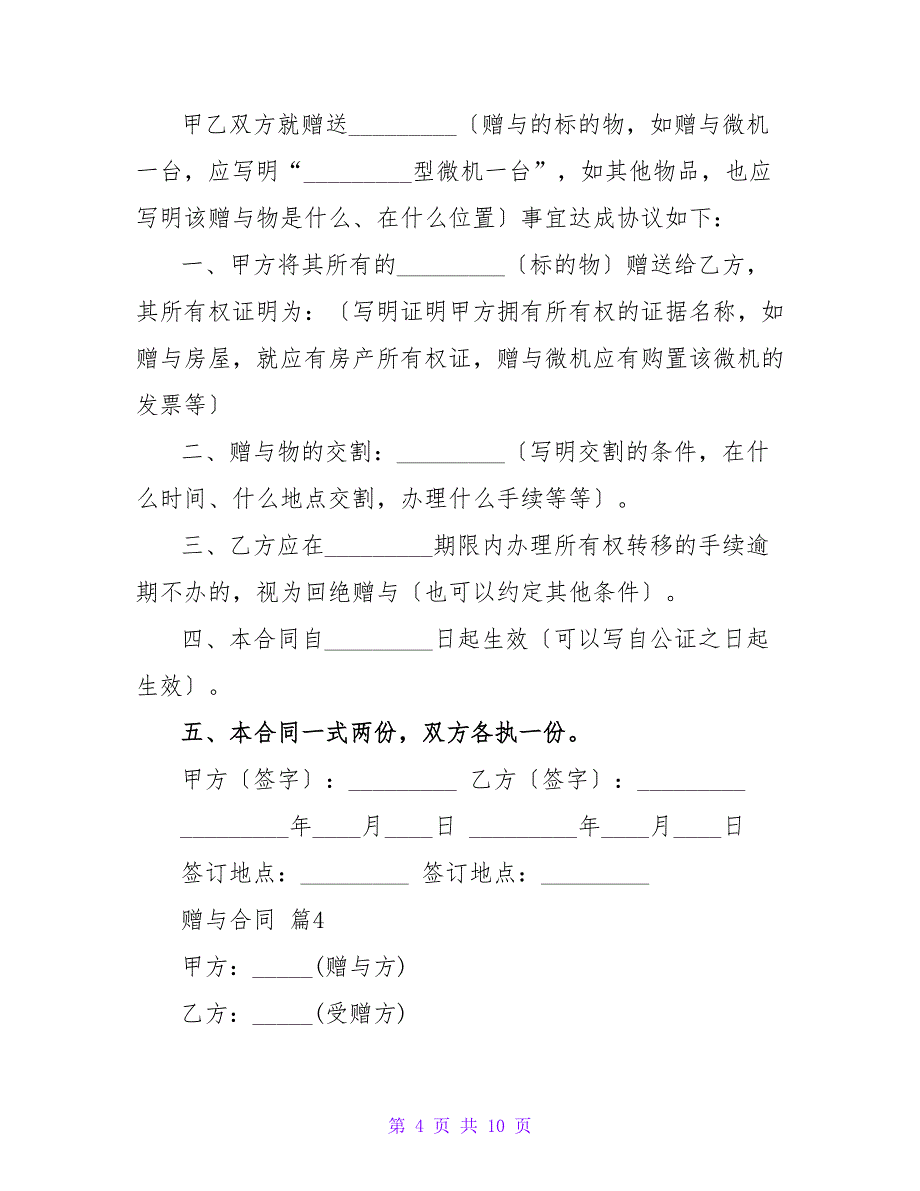 甲乙双方就赠送_________〔赠与的标的物，如赠与微机
一台，应写明“_________型微机一台”，如其他物品，也应
写明该赠与物是什么、在什么位置〕事宜达成协议如下：
一、甲方将其所有的_________〔标的物〕赠送给乙方，
其所有权证明为：〔写明证明甲方拥有所有权的证据名称，如
赠与房屋，就应有房产所有权证，赠与微机应有购置该微机的
发票等〕
二、赠与物的交割：_________〔写明交割的条件，在什
么时间、什么地点交割，办理什么手续等等〕。
三、乙方应在_________期限内办理所有权转移的手续逾
期不办的，视为回绝赠与〔也可以约定其他条件〕。
四、本合同自_________日起生效〔可以写自公证之日起
生效〕。
五、本合同一式两份，双方各执一份。
甲方〔签字〕：_________ 乙方〔签字〕：_________
_________年____月____日 _________年____月____日
签订地点：_________ 签订地点：_________
赠与合同 篇4
甲方：_____(赠与方)
乙方：_____(受赠方)
第 4 页 共 10 页